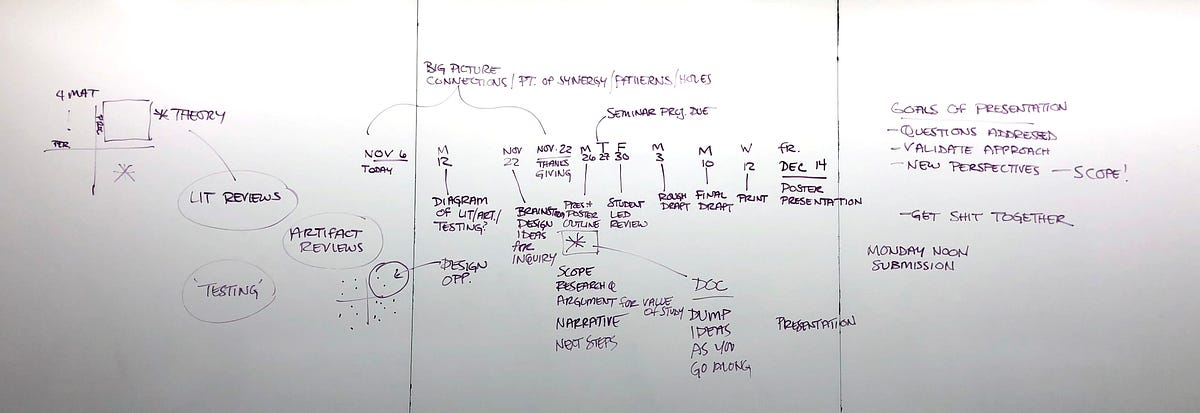 4 MAT
PER
* THEORY
LIT REVIEWS
ARTIFACT
REVIEWS
'TESTING'
DESIGN
OPP.
BIG PICTURE
CONNECTIONS / PT. OF SYNERGY / PATTERNS / HOLES
SEMINAR PROJ. DUE
NOV 6
TODAY
M
12
DIAGRAM
OF LIT/ART./
TESTING?
NOV
22
BRAINSTORM
DESIGN
IDEAS
FOR
INQUIRY
NOV. 22
THANKS
GIVING
M
26
PRES +
POSTER
OUTLINE
*
T
27
F
30
STUDENT
LED
REVIEW
M
3
ROUGH
DRAFT
M
10
FINAL
DRAFT
W
12
PRINT
FR.
DEC 14
POSTER
PRESENTATION
SCOPE
RESEARCH Q
ARGUMENT FOR VALUE
OF STUDY
NARRATIVE
NEXT STEPS
DOC
DUMP
IDEAS
AS YOU
GO ALONG
PRESENTATION
GOALS OF PRESENTATION
- QUESTIONS ADDRESSED
- VALIDATE APPROACH
- NEW PERSPECTIVES — SCOPE!
- GET SHIT TOGETHER
MONDAY NOON
SUBMISSION